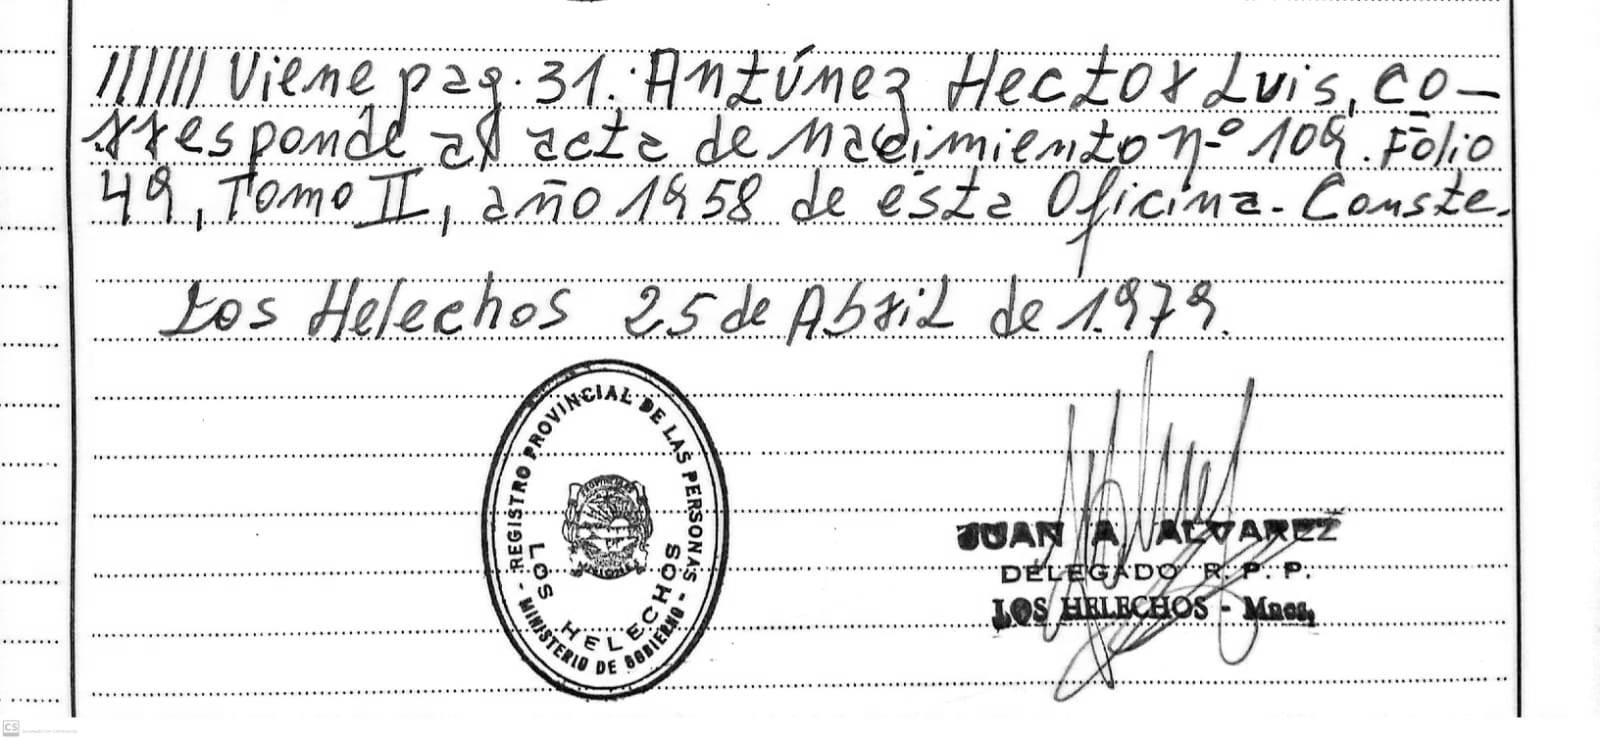 ////// Viene pag. 31. Antúnez Hector Luis, co-
rresponde al acta de nacimiento nº 109. Folio
49, Tomo II, año 1958 de ésta Oficina. Conste.
Los Helechos 25 de Abril de 1.979.
- REGISTRO PROVINCIAL DE LAS PERSONAS -
LOS HELECHOS
MINISTERIO DE GOBIERNO
JUAN A. ALVAREZ
DELEGADO R. P. P.
LOS HELECHOS - Mnes.
CS